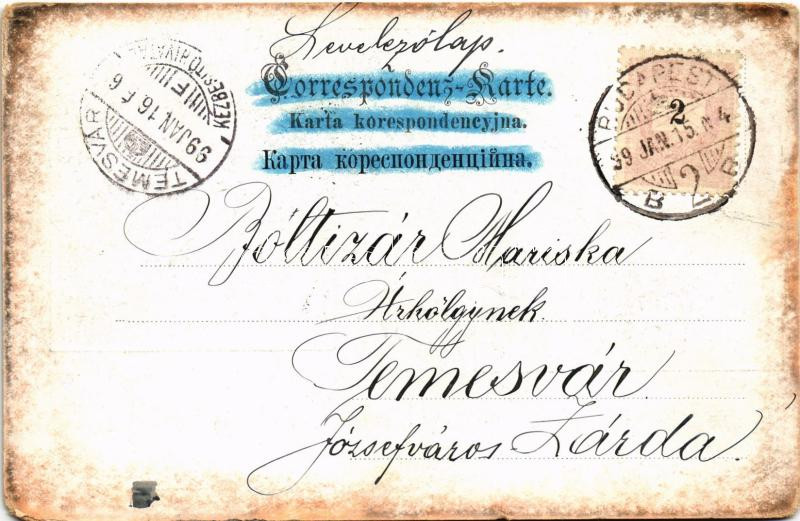 Levelezőlap.
Correspondenz-Karte.
Karta korespondencyjna.
Карта кореспонденційна.
2
BUDAPEST
99 JAN. 15. N 4
TEMESVÁR
99 JAN 16 É 6
KÉZBESITŐ HIVATAL
Bóltizár Mariska
Úrhölgynek.
Temesvár.
Józsefváros Zárda.